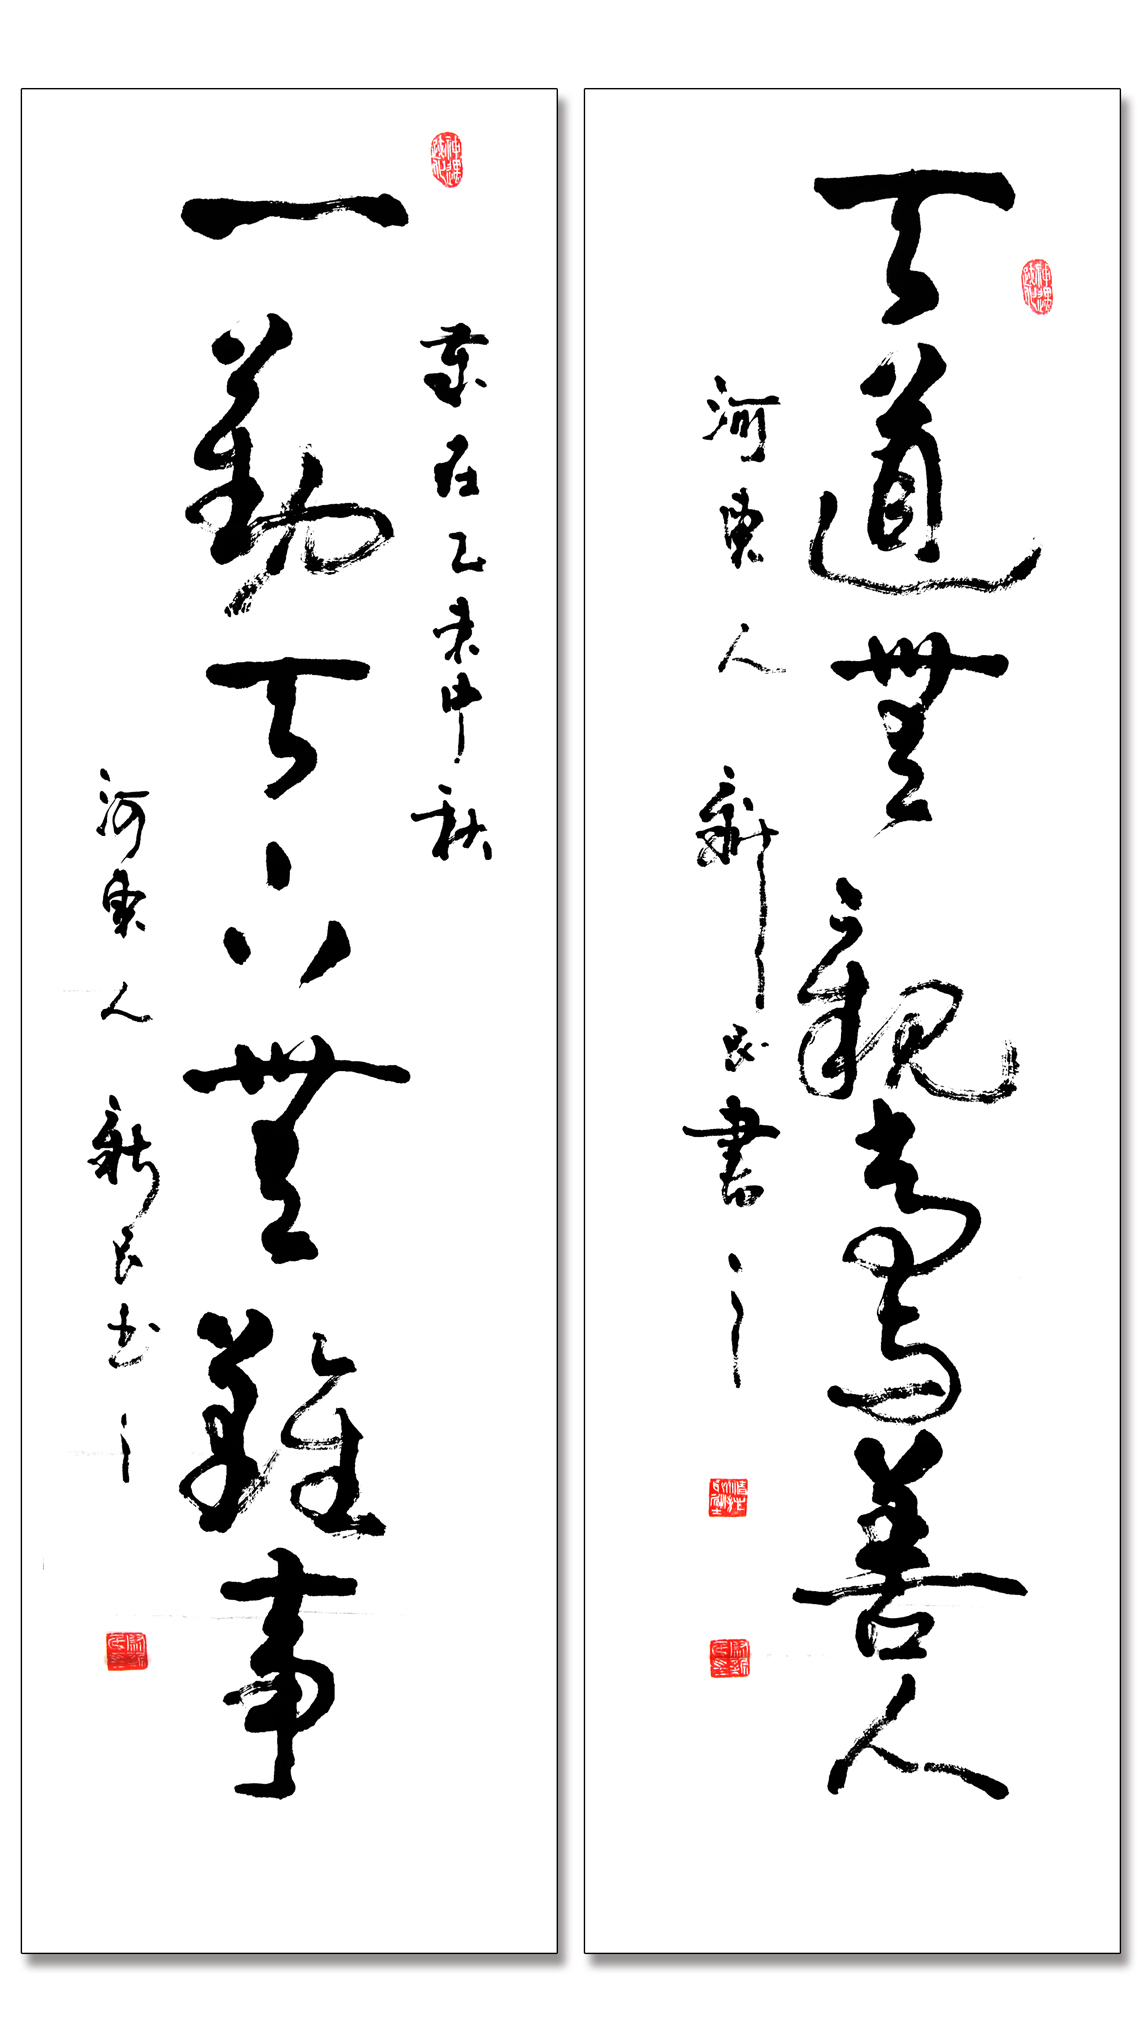 天道無親常與善人
河東人新民書
歲在乙未中秋
一勤天下無難事
河東人新民书